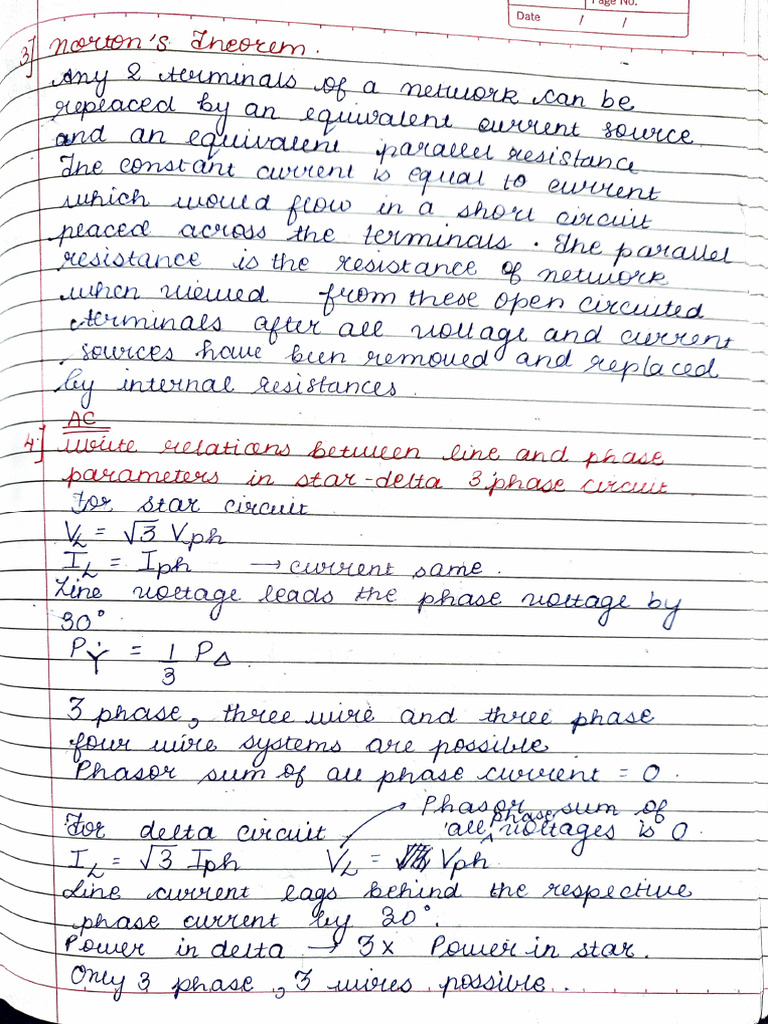 Page No.
Date / /
3] Norton's Theorem.
Any 2 terminals of a network can be
replaced by an equivalent current source
and an equivalent parallel resistance
The constant current is equal to current
which would flow in a short circuit
placed across the terminals. The parallel
resistance is the resistance of network
when viewed from these open circuited
terminals after all voltage and current
sources have been removed and replaced
by internal resistances.
AC
4.] Write relations between line and phase
parameters in star-delta 3 phase circuit.
For star circuit
V_L = √3 Vph
I_L = Iph → current same.
Line voltage leads the phase voltage by
30°
P_Y = 1/3 P_Δ
3 phase, three wire and three phase
four wire systems are possible
Phasor sum of all phase current = 0.
→ Phasor sum of
For delta circuit all phase voltages is 0.
I_L = √3 Iph V_L = Vph
Line current lags behind the respective
phase current by 30°.
Power in delta → 3x Power in star.
Only 3 phase, 3 wires possible.